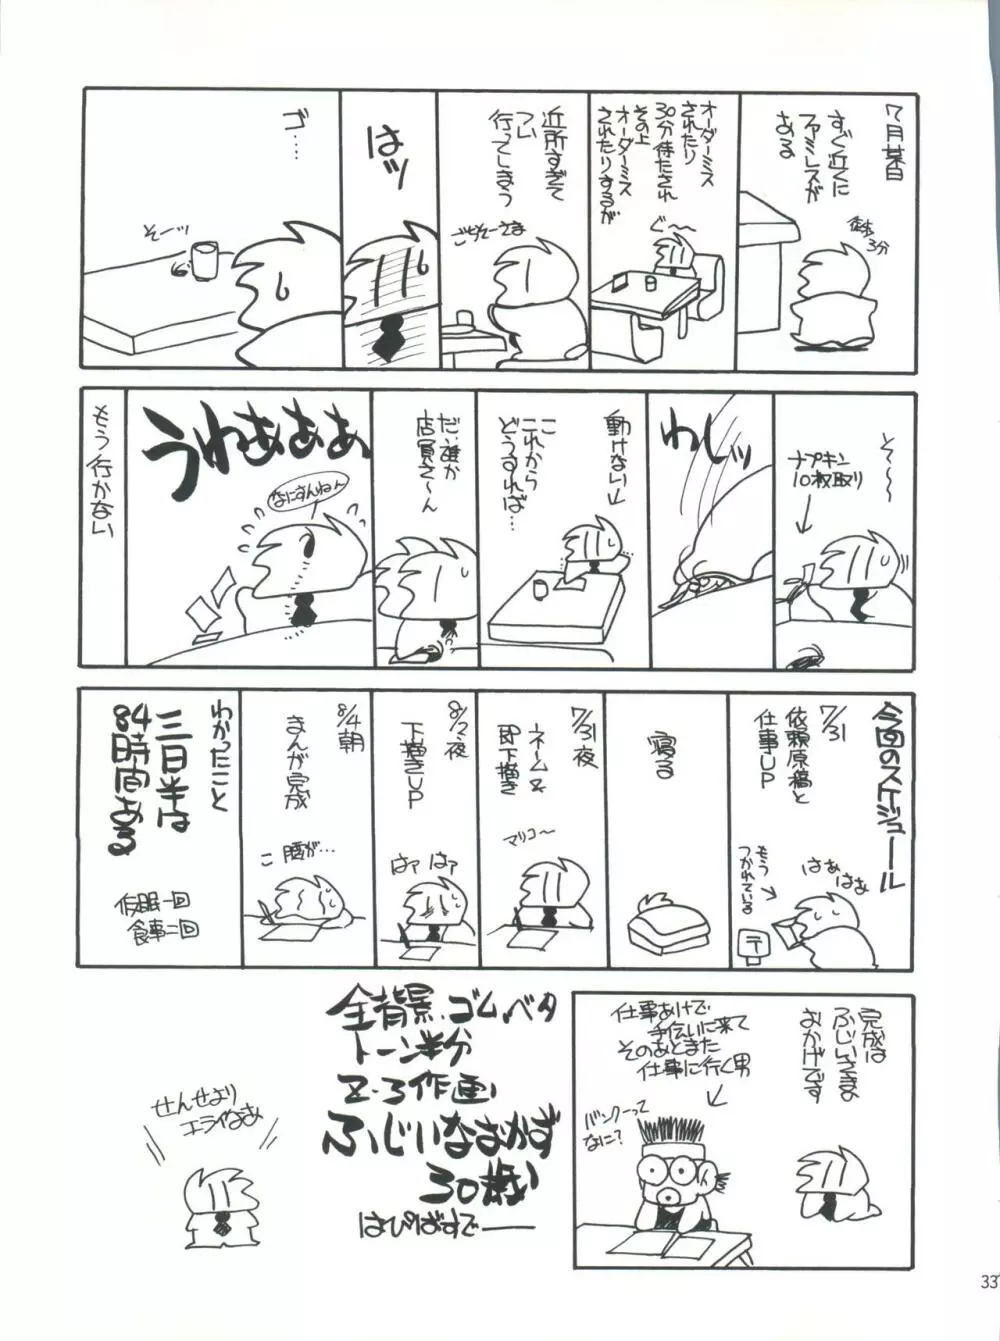 7月某日
すぐ近くに
ファミレスが
ある
徒歩
3分
オーダーミス
されたり
30分待たされ
その上
オーダーミス
されたりするが
ぐ〜〜
近所すぎて
つい
行ってしまう
ごちそーさま
はッ
ゴ…
そーッ
そ〜〜
ナプキン
10枚取り
わしッ
動けない
これから
どうすれば…
だ、誰か
店員さ〜ん
うわぁぁぁぁ
なにすんねん
もう行かない
今回のスケジュール
7/31
依頼原稿と
仕事UP
はぁはぁ
もう
つかれている
〒
寝る
7/31夜
ネーム&
即下描き
マリコ〜
8/2夜
下描きUP
はァはァ
8/4朝
まんが完成
こ腰が…
わかったこと
三日半は
84時間ある
仮眠一回
食事二回
完成は
ふじいさまの
おかげです
仕事あけで
手伝いに来て
そのあとまた
仕事に行く男
バンクーって
なに?
全背景、ゴム、ベタ
トーン半分
2・3作画
ふじいなおかず
30歳
はぴばすでー
せんせより
エライなあ
33